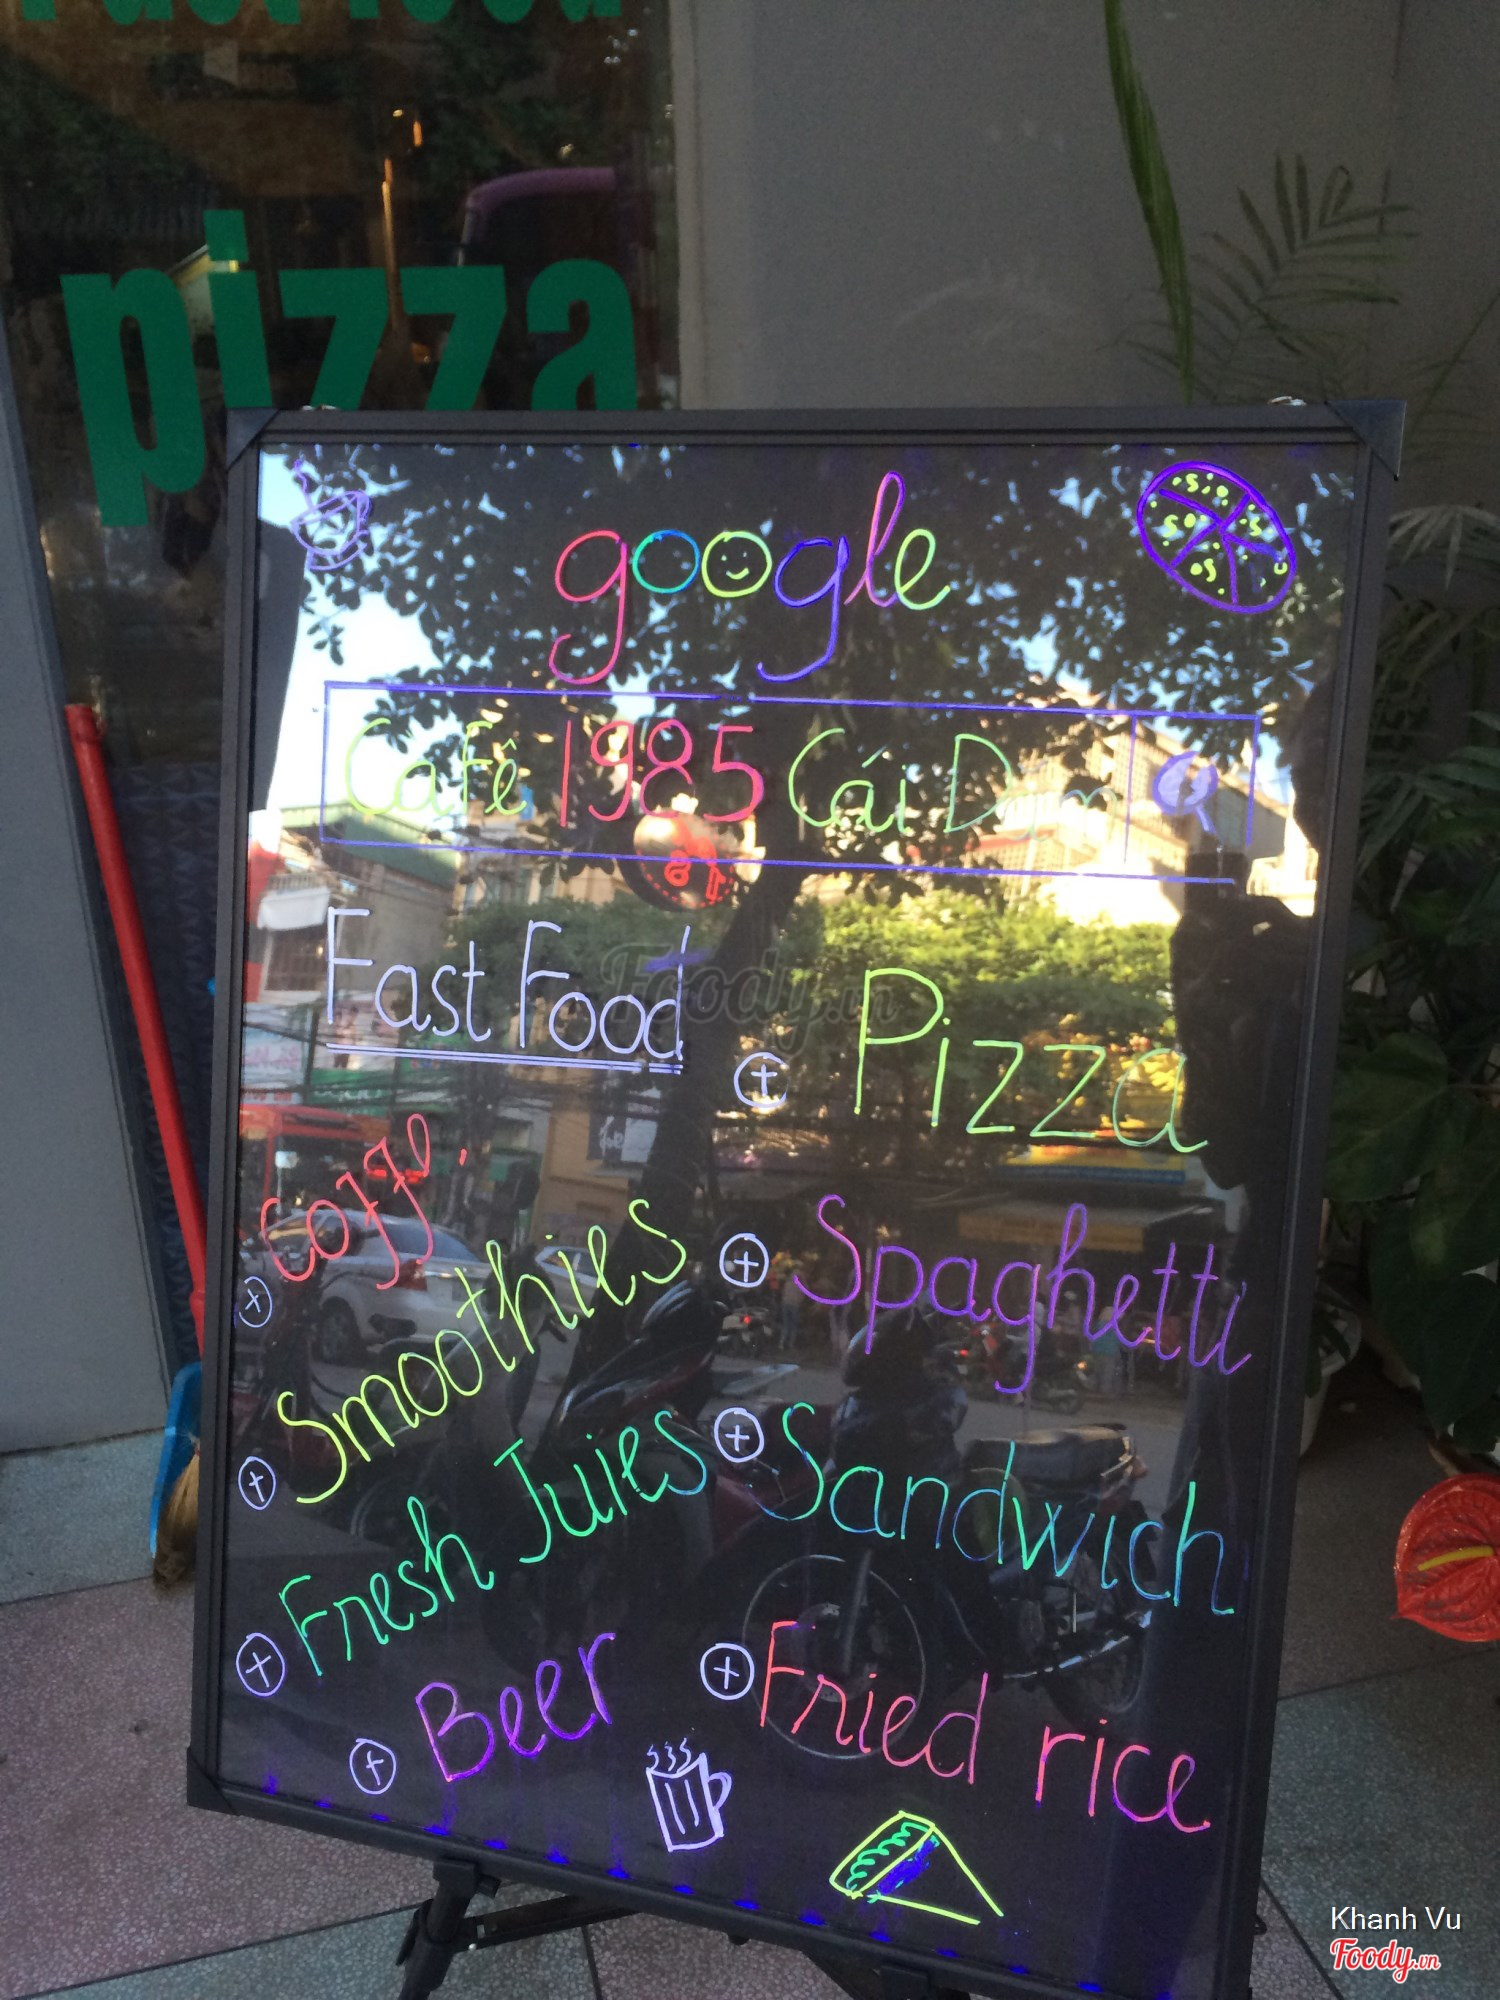 pizza
google
Cafê 1985 Cái Dăm
Fast Food
Coffe
Smoothies
Fresh Juies
Beer
Pizza
Spaghetti
Sandwich
Fried rice
Foody.vn
Khanh Vu
Foody.vn